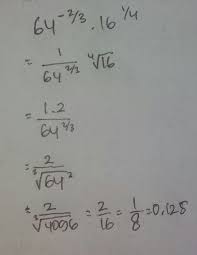 64^(-2/3) · 16^(1/4)
= 1/64^(2/3) ⁴√16
= 1.2/64^(2/3)
= 2/³√64²
= 2/³√4096 = 2/16 = 1/8 = 0.125